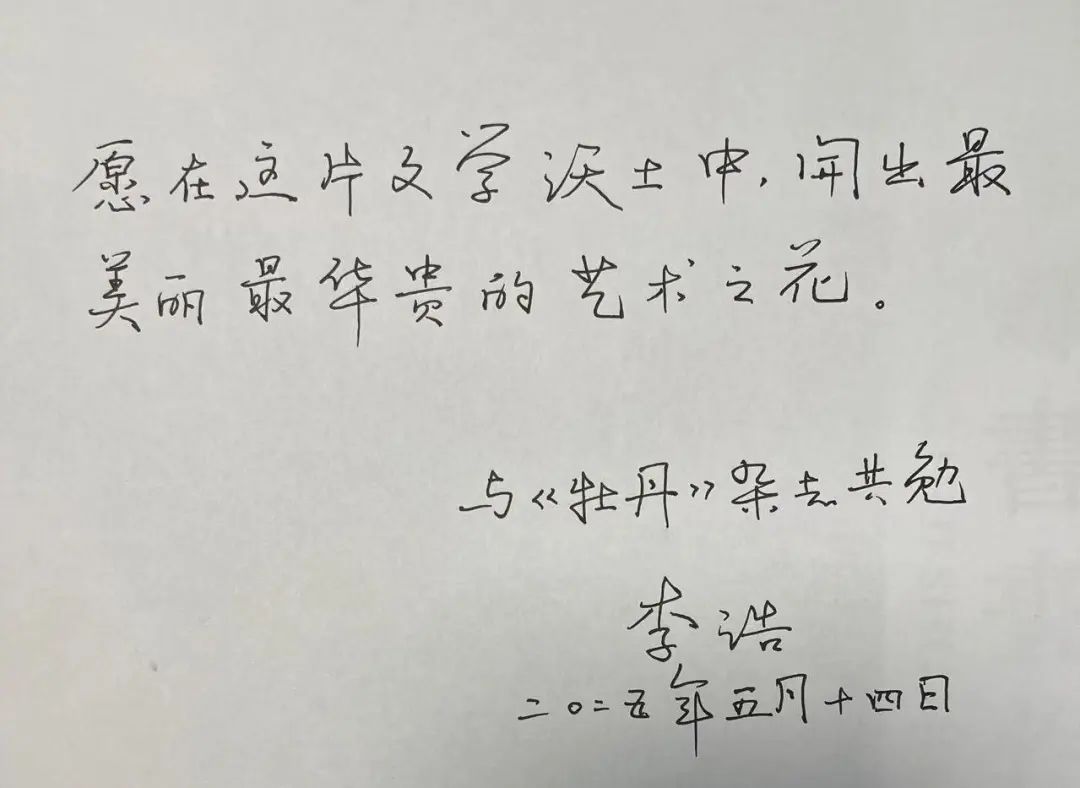 愿在这片文学沃土中,开出最
美丽最华贵的艺术之花。
与《牡丹》杂志共勉
李浩
二〇二五年五月十四日